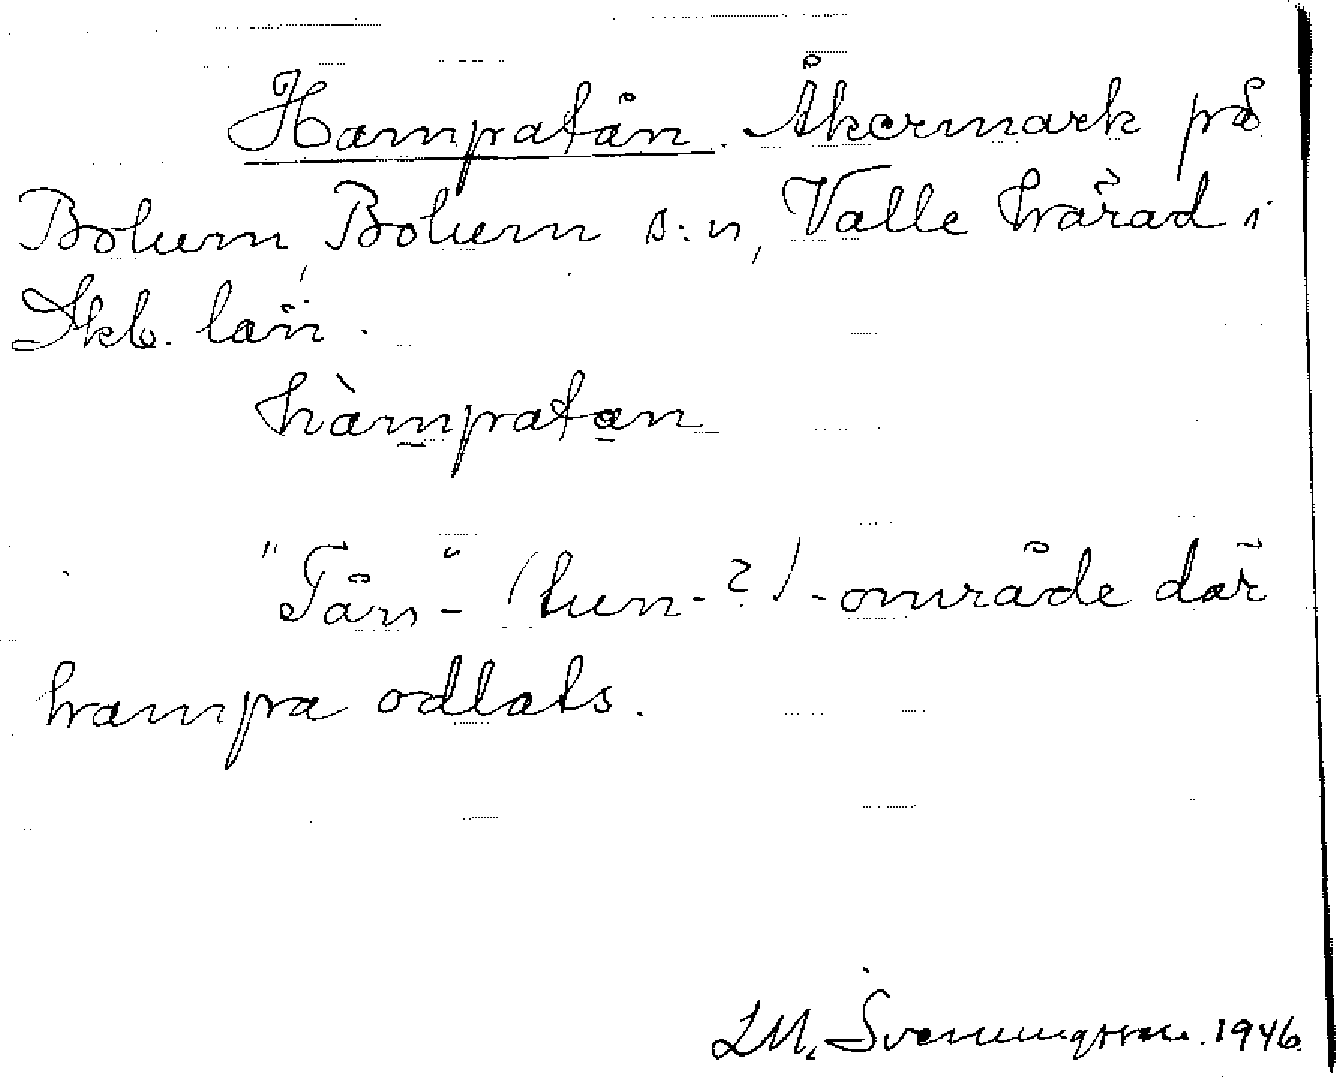 Hampatån. Åkermark på
Bolum, Bolum s:n, Valle härad i
Skb. län.
hàmpatan
"Tån-" (tun-?)-område där
hampa odlats.
LM. Svenungsson. 1946